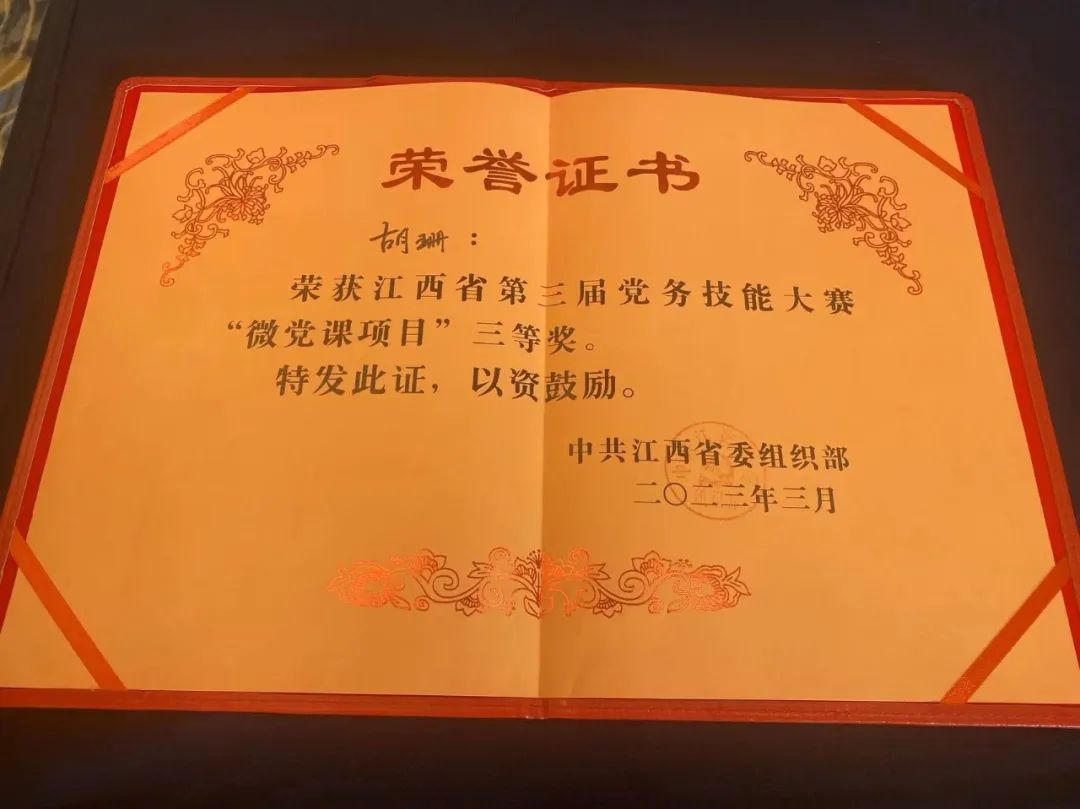 荣誉证书
胡珊：
荣获江西省第三届党务技能大赛
“微党课项目”三等奖。
特发此证，以资鼓励。
中共江西省委组织部
二〇二三年三月